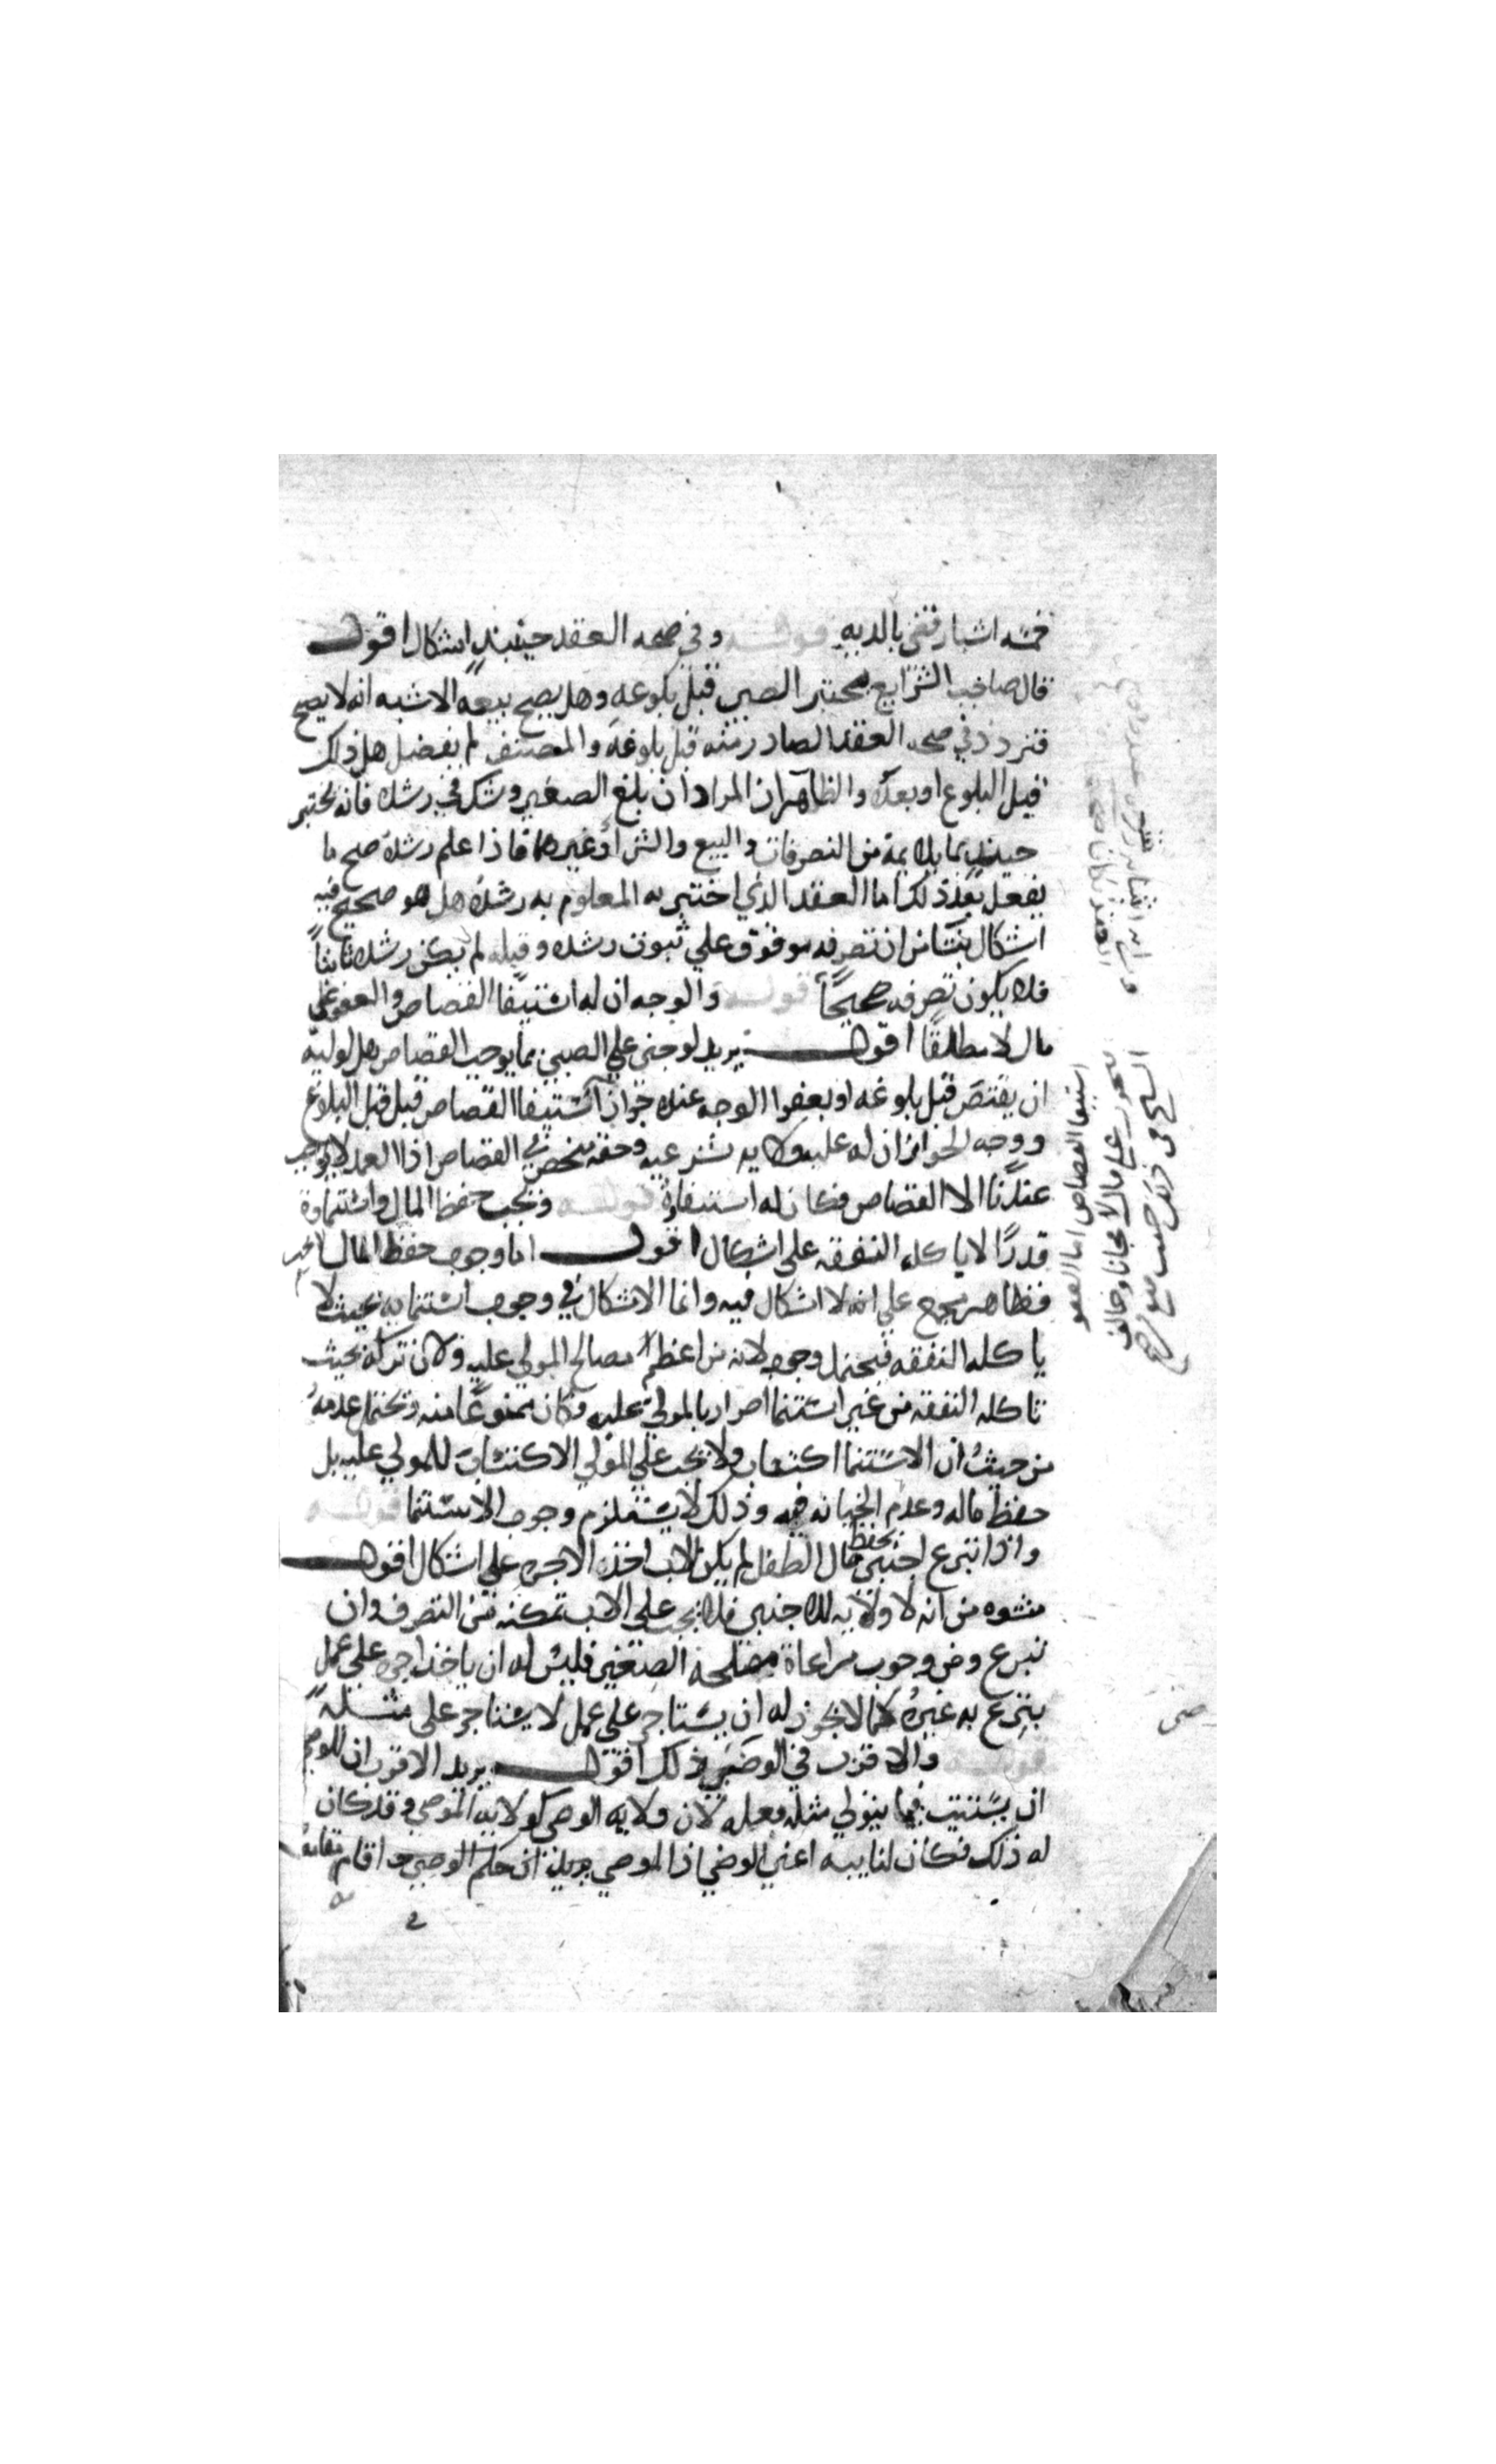 خمسه اشبار فقي بالديه قوله وفي صحه العقد حينيذ اشكال اقول
قال صاحب الشرايع يختبر الصبي قبل بلوغه وهل يصح بيعه الاشبه انه لا يصح
فتردد في صحه العقد الصادر منه قبل بلوغه والمصنف لم يفصل هل ذلك
قبل البلوغ او بعده والظاهر ان المراد ان بلغ الصغير وشك في رشده فانه يختبر
حينيذ بما يلايمه من التصرفات والبيع والشرا وغيرهما فاذا علم رشده صح ما
يفعل بعد ذلك اما العقد الذي اختبر به المعلوم به رشده هل هو صحيح فيه
اشكال ينشا من ان تصرفه موقوف علي ثبوت رشده وقبله لم يكن رشده ثابتاً
فلا يكون تصرفه صحيحاً قوله والوجه ان له استيفا القصاص والعفو علي
مال لا مطلقا اقول يريد لو جني علي الصبي بما يوجب القصاص هل لوليه
ان يقتص قبل بلوغه او يعفوا الوجه عنده جواز استيفا القصاص قبل البلوغ
ووجه الجواز ان له عليه ولايه شرعيه وحقه منحصر في القصاص اذ العمد لا يوجب
عندنا الا القصاص فكان له استيفاؤه قوله ويجب حفظ المال واستنماوه
قدرًا لا ياكله النفقه علي اشكال اقول اما وجوب حفظ المال
فظاهر مجمع علي انه لا اشكال فيه وانما الاشكال في وجوب استنمايه بحيث لا
ياكله النفقه فيحتمل وجوبه لانه من اعظم مصالح المولي عليه ولان تركه بحيث
تاكله النفقه من غير استنما اضرار بالمولي عليه فكان ممنوعًا منه ويحتمل عدمه
من حيث ان الاستنما اكتساب ولا يجب علي الولي الاكتساب للمولي عليه بل
حفظ ماله وعدم الخيانه فيه وذلك لا يستلزم وجوب الاستنما قوله
واذا تبرع اجنبي بحفظ مال الطفل لم يكن للاب اخذ الاجره علي اشكال اقول
منشوه من انه لا ولايه للاجنبي فلا يجب علي الاب تمكنه من التصرف وان
تبرع ومن وجوب مراعاة مصلحه الصغير فليس له ان ياخذ اجره علي عمل
يتبرع به غيره كما لا يجوز له ان يستاجر علي عمل لا يستاجر علي مثله
قوله والاقرب في الوصي ذلك اقول يريد الاقرب ان للوصي
ان يستنيب فيما يتولي مثله فعله لان ولايه الوصي كولايه الموصي وقد كان
له ذلك فكان لنايبه اعني الوصي اذ الموصي يريد ان حكم الوصي اقام مقامه
استيفا القصاص اما العفو
فيجوز علي مال لا مجانا وخالف
الشيخ في ذلك حيث منع